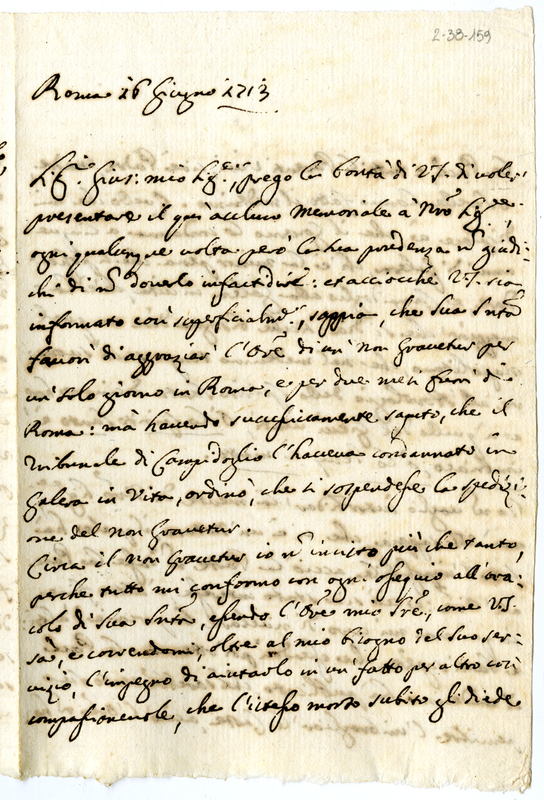 2-38-159
Roma 26 Giugno 1713
Sig.r Gius: mio Sig.re, prego la bontà di V.S. di voler
presentare il qui accluso Memoriale à Nro Sig.re,
ogni qualunque volta però la sua prudenza nō giudi-
chi di nō doverlo infastidire: et acciocchè V.S. sia
informato così superficialmte, sappia, che Sua Sntà
favorì di aggraziar l'Orē di un' Non Gravetur per
un' solo giorno in Roma, e per due mesi fuori di
Roma: mà havendo successivamente saputo, che il
Tribunale di Campidoglio l'haveva condannato in
Galera in Vita, ordinò, che si sospendesse la spedizi-
one del non Gravetur.
Circa il non Gravetur io nō insisto più che tanto,
perche tutto mi conformo con ogni ossequio all'ora-
colo di Sua Sntà, essendo l'Orē mio Srē, come V.S.
sà, e correndomi, oltre al mio bisogno del suo ser-
vizio, l'impegno di aiutarlo in un' fatto per altro così
compassionevole, che l'istesso morto subito gli diede